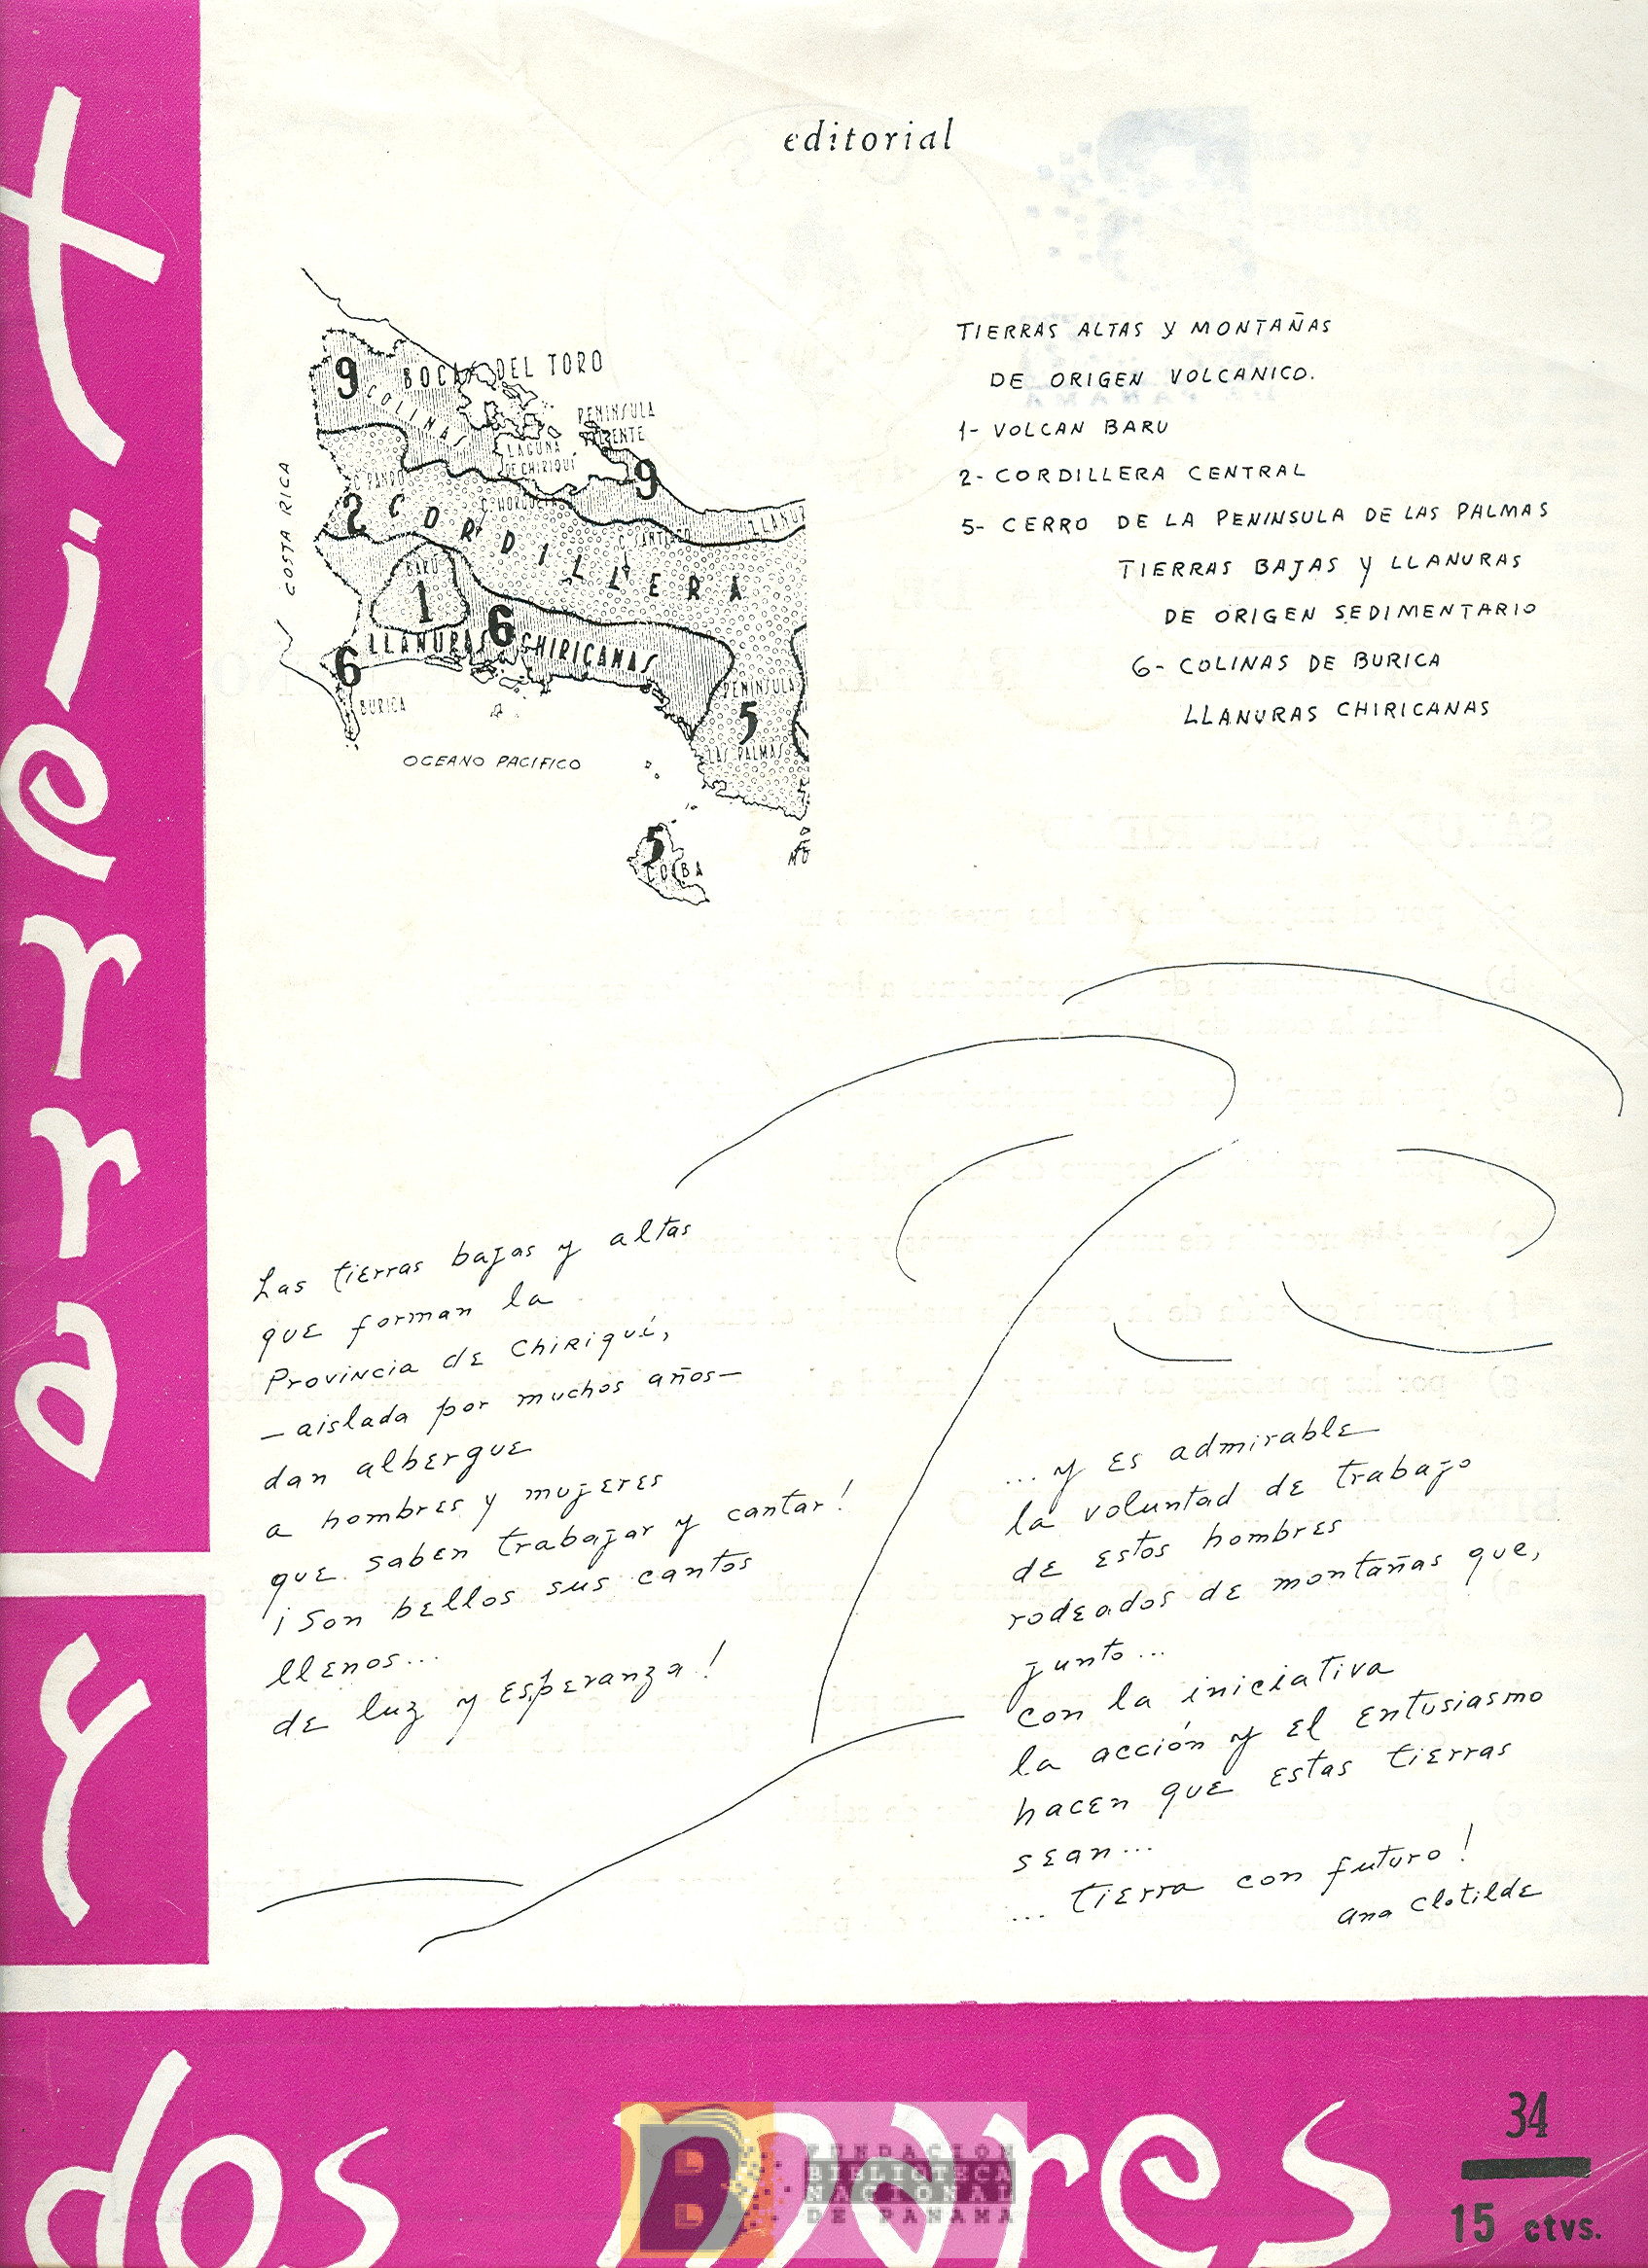 tierra
y
dos mares
editorial
BOCAS DEL TORO
9
COLINAS
PENINSULA
VALIENTE
LAGUNA
DE CHIRIQUI
9
C. PANDO
2
CORDILLERA
C. HORQUETA
C. SANTIAGO
LLANUR
COSTA RICA
BARU
1
6
LLANURAS CHIRICANAS
6
BURICA
PENINSULA
5
LAS PALMAS
OCEANO PACIFICO
5
COIBA
TIERRAS ALTAS y MONTAÑAS
DE ORIGEN VOLCANICO.
1- VOLCAN BARU
2- CORDILLERA CENTRAL
5- CERRO DE LA PENINSULA DE LAS PALMAS
TIERRAS BAJAS y LLANURAS
DE ORIGEN SEDIMENTARIO
6- COLINAS DE BURICA
LLANURAS CHIRICANAS
Las tierras bajas y altas
que forman la
Provincia de Chiriquí,
— aislada por muchos años —
dan albergue
a hombres y mujeres
que saben trabajar y cantar!
¡Son bellos sus cantos
llenos...
de luz y esperanza!
...y es admirable
la voluntad de trabajo
de estos hombres
rodeados de montañas que,
junto...
con la iniciativa
la acción y el entusiasmo
hacen que estas tierras
sean...
... tierra con futuro!
Ana Clotilde
34
15 ctvs.
FUNDACION
BIBLIOTECA
NACIONAL
DE PANAMA